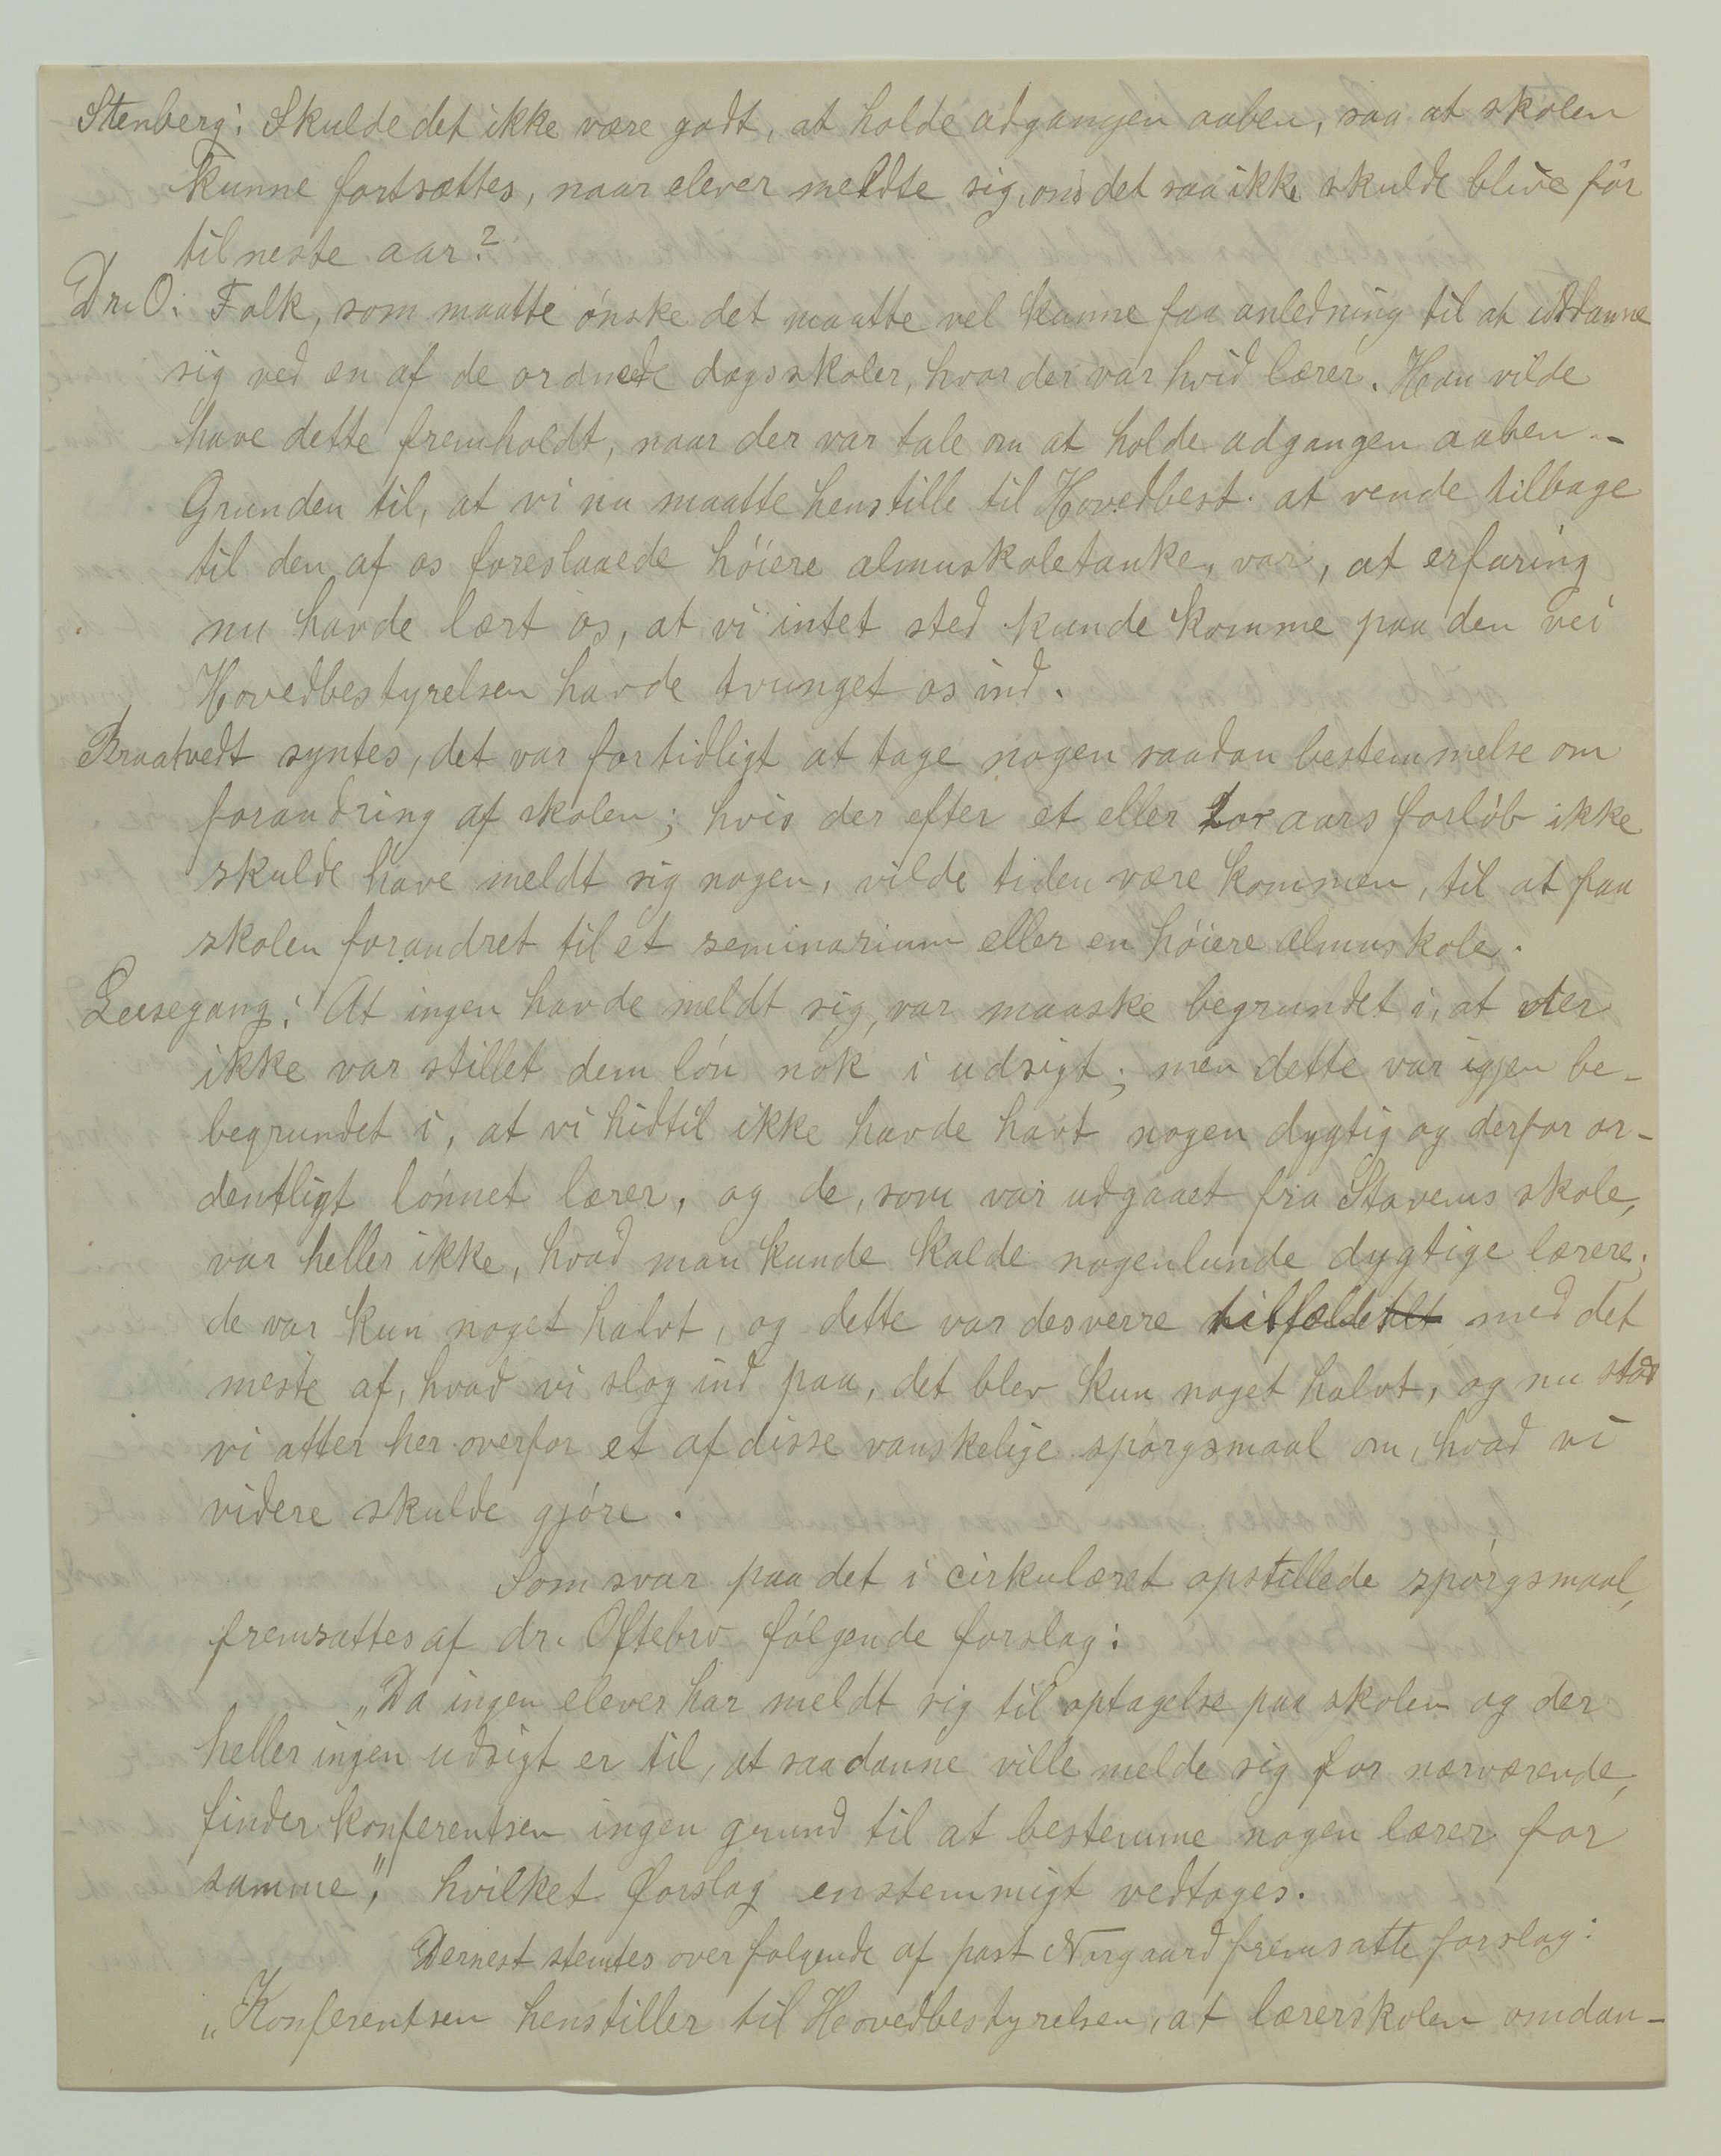 Stenberg: Skulde det ikke være godt, at holde adgangen aaben, saa at skolen
kunne fortsættes, naar elever meldte sig, om det saa ikke skulde blive før
til neste aar?
Dr. O: Folk, som maatte ønske det maatte vel kunne faa anledning til at uddanne
sig ved en af de ordnede dagsskoler, hvor der var hvid lærer. Han vilde
have dette fremholdt, naar der var tale om at holde adgangen aaben. –
Grunden til, at vi nu maatte henstille til Hovedbest. at vende tilbage
til den af os foreslaaede høiere almuskoletanke, var, at erfaring
nu havde lært os, at vi intet sted kunde komme paa den vei
Hovedbestyrelsen havde tvunget os ind.
Braatvedt syntes, det var for tidligt at tage nogen saadan bestemmelse om
forandring af skolen; hvis der efter et eller to aars forløb ikke
skulde have meldt sig nogen, vilde tiden være kommen, til at faa
skolen forandret til et seminarium eller en høiere almuskole.
Leisegang: At ingen havde meldt sig, var maaske begrundet i, at der
ikke var stillet dem løn nok i udsigt; men dette var igjen be-
begrundet i, at vi hidtil ikke havde havt nogen dygtig og derfor or-
dentligt lønnet lærer, og de, som var udgaaet fra Stavems skole,
var heller ikke, hvad man kunde kalde nogenlunde dygtige lærere;
de var kun noget halvt, og dette var desverre tilfældet med det
meste af, hvad vi slog ind paa, det blev kun noget halvt, og nu stod
vi atter her overfor et af disse vanskelige spørgsmaal om, hvad vi
videre skulde gjøre.
Som svar paa det i cirkulæret opstillede spørgsmaal,
fremsattes af dr. Oftebro følgende forslag:
„Da ingen elever har meldt sig til optagelse paa skolen og der
heller ingen udsigt er til, at saadanne ville melde sig for nærværende,
finder konferentsen ingen grund til at bestemme nogen lærer for
samme", hvilket forslag enstemmigt vedtages.
Dernest stemtes over følgende af past Norgaard fremsatte forslag:
„Konferentsen henstiller til Hovedbestyrelsen, at lærerskolen omdan-